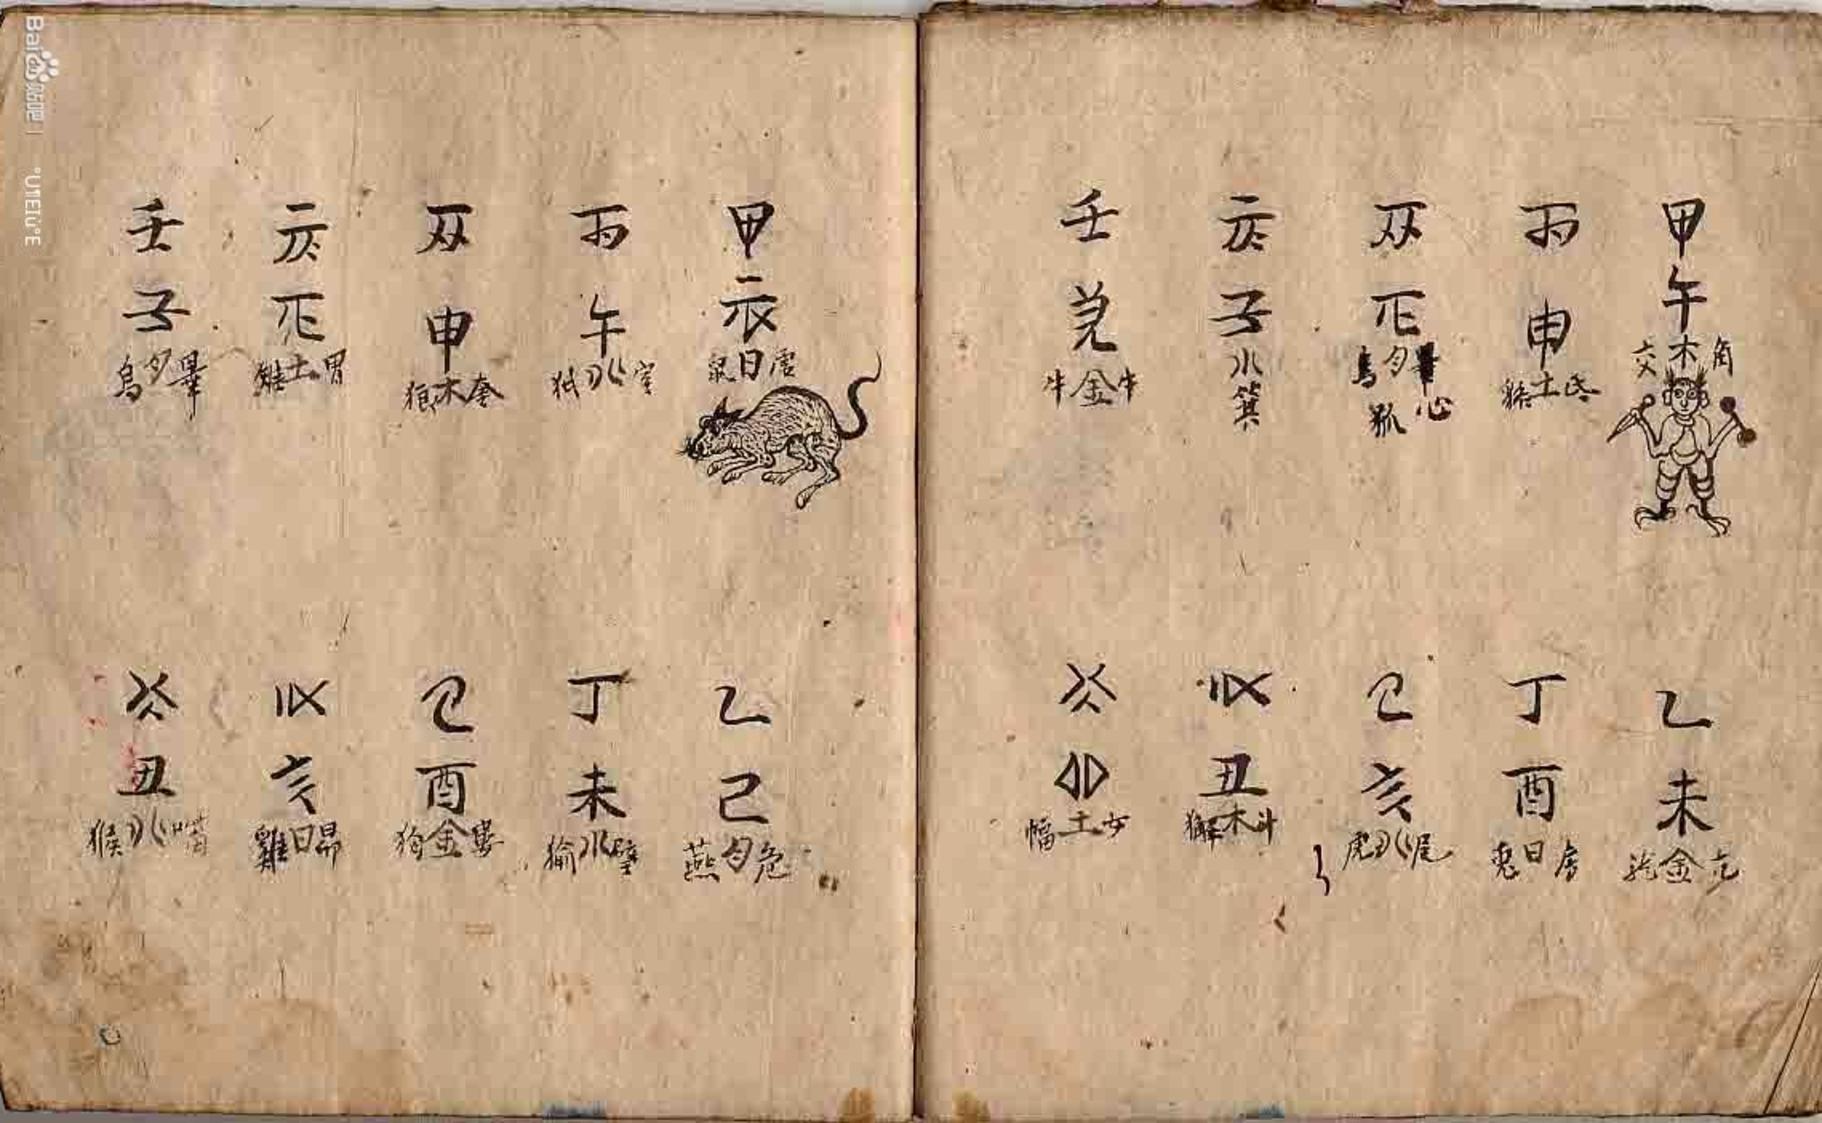 甲午
角木交
乙未
亢金
丙申
氐土
丁酉
房日兎
戊戌
心狐
己亥
尾火虎
庚子
箕水
辛丑
斗木獬
壬寅
牛金牛
癸卯
女土蝠
甲辰
虚日鼠
乙己
危月燕
丙午
室火
丁未
壁水
戊申
奎木狼
己酉
婁金狗
庚戌
胃土雉
辛亥
昴日雞
壬子
畢月烏
癸丑
嘴火猴